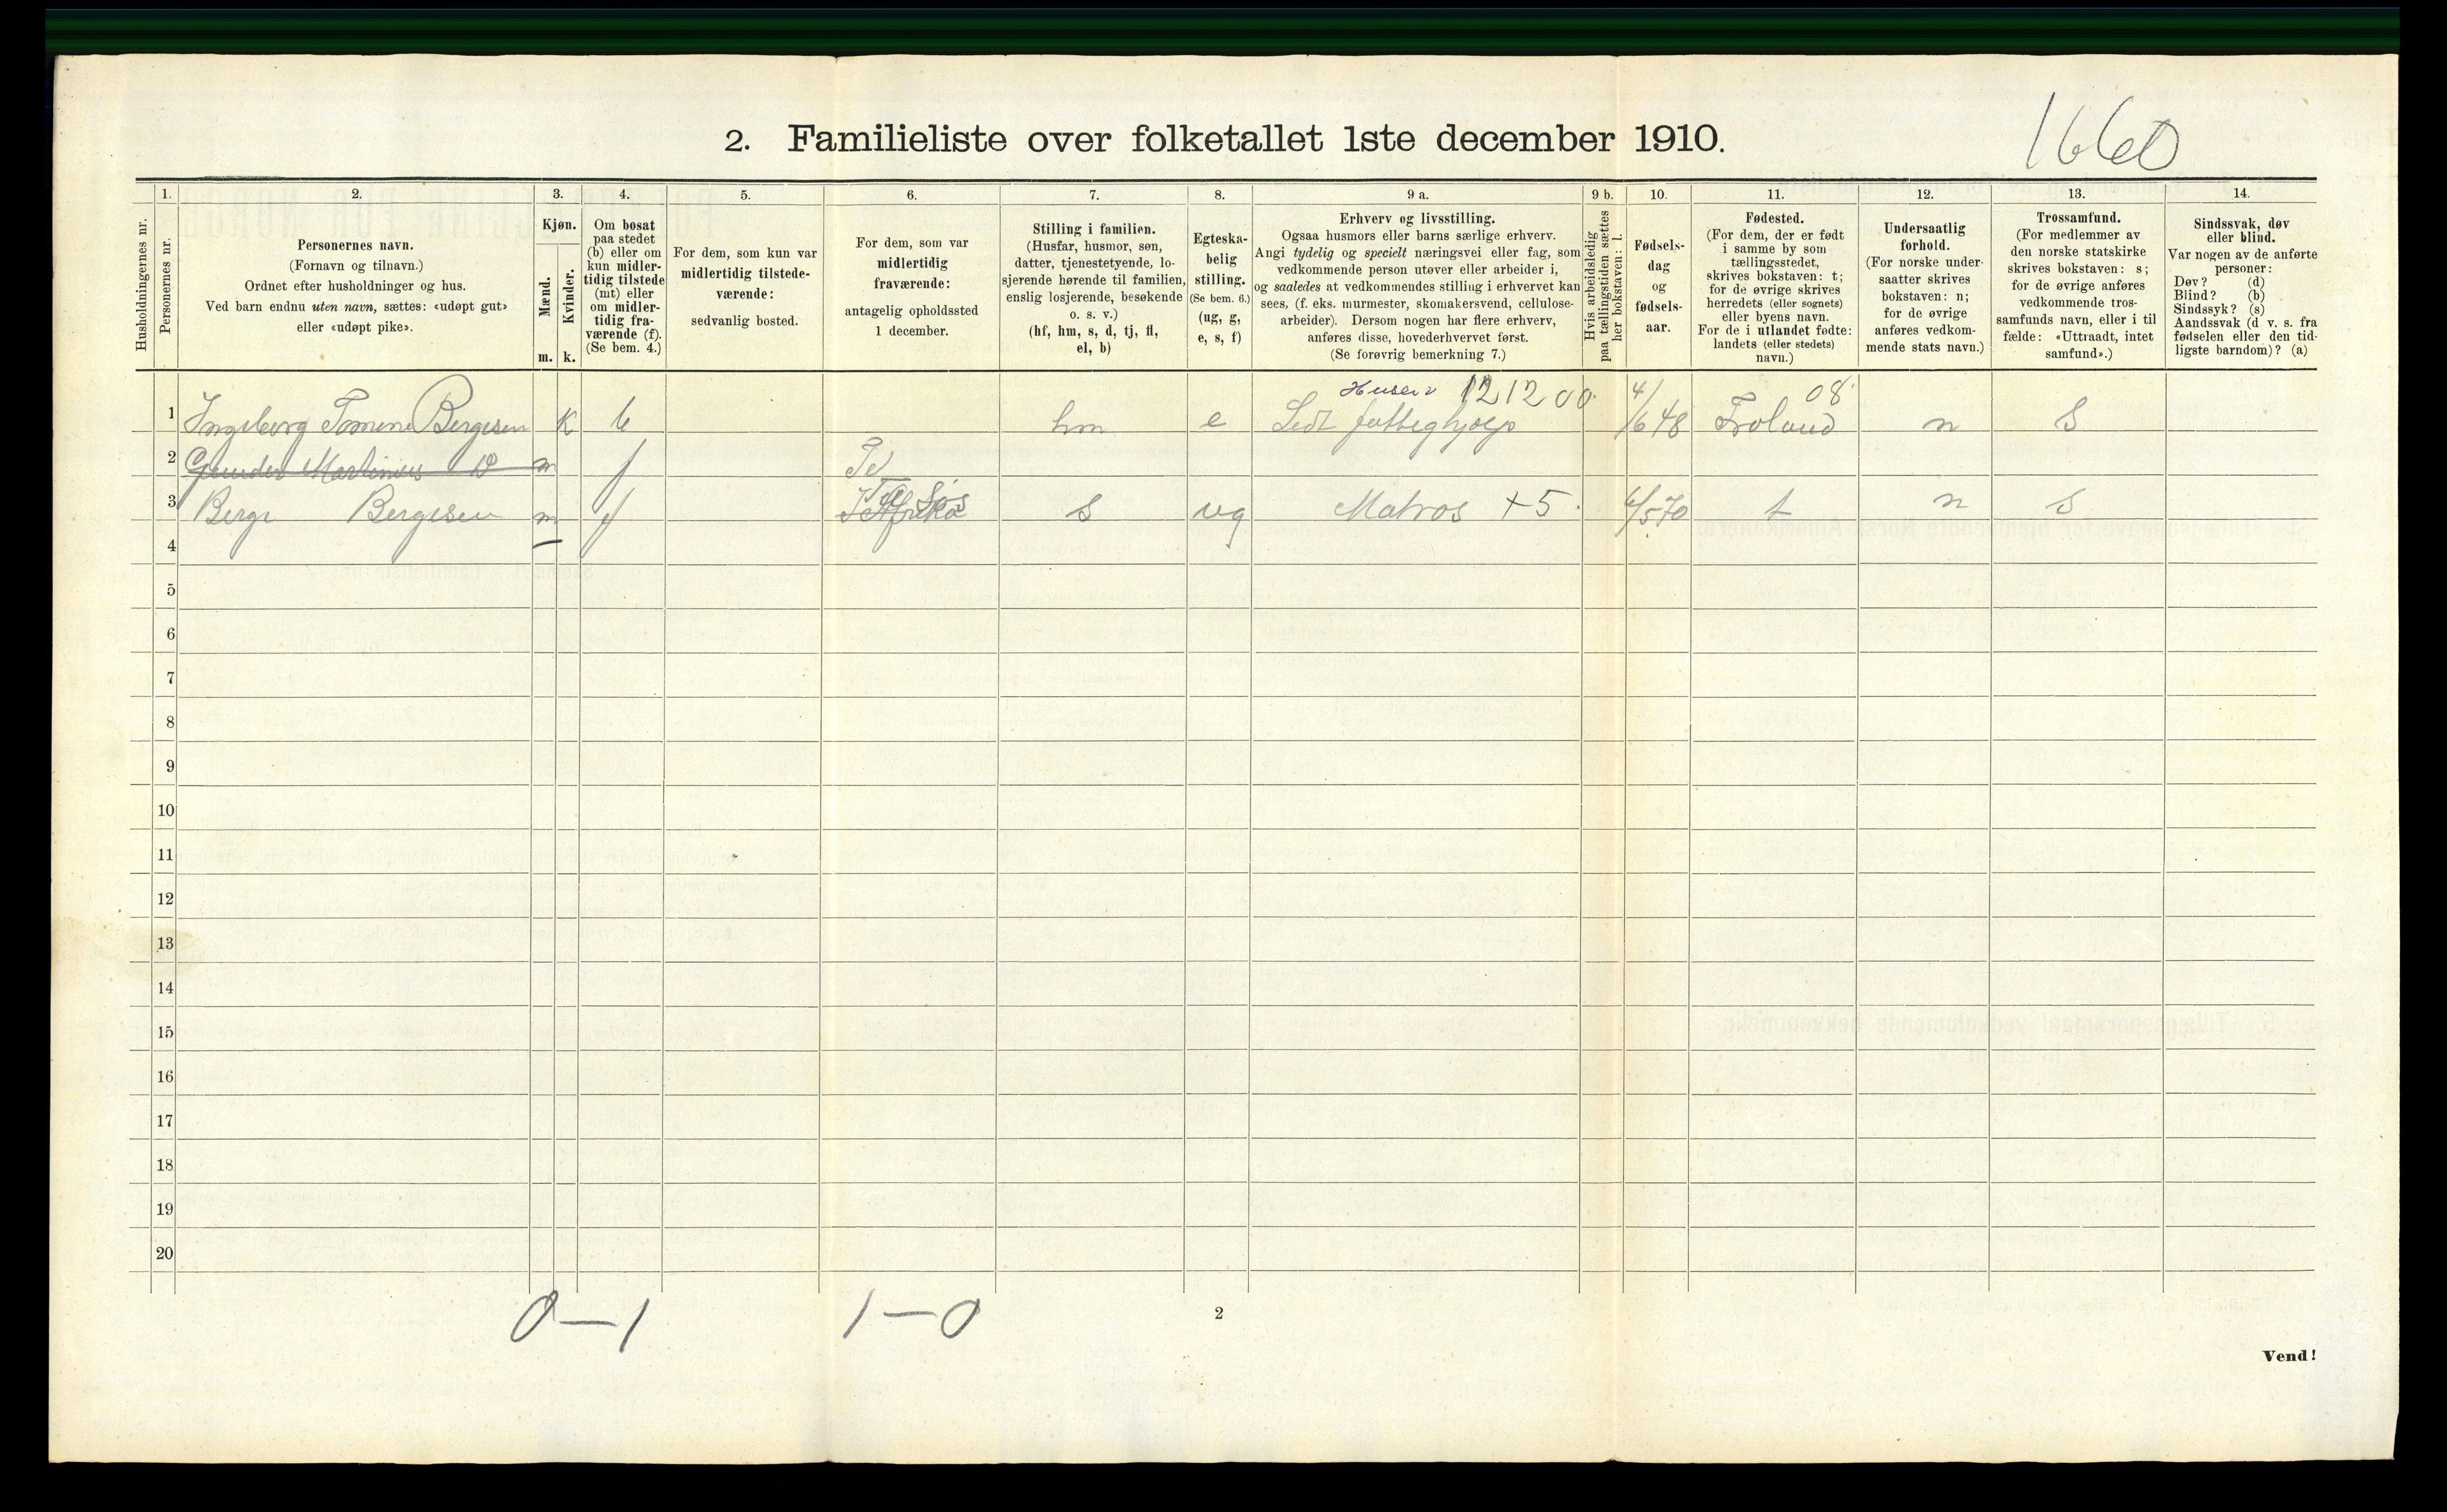 2. Familieliste over folketallet 1ste december 1910.
1660
1. 2. 3. 4. 5. 6. 7. 8. 9 a. 9 b. 10. 11. 12. 13. 14.
Husholdningernes nr.
Personernes nr.
Personernes navn.
(Fornavn og tilnavn.)
Ordnet efter husholdninger og hus.
Ved barn endnu uten navn, sættes: «udøpt gut»
eller «udøpt pike».
Kjøn.
Mænd.
Kvinder.
m. k.
Om bosat
paa stedet
(b) eller om
kun midler-
tidig tilstede
(mt) eller
om midler-
tidig fra-
værende (f).
(Se bem. 4.)
For dem, som kun var
midlertidig tilstede-
værende:
sedvanlig bosted.
For dem, som var
midlertidig
fraværende:
antagelig opholdssted
1 december.
Stilling i familien.
(Husfar, husmor, søn,
datter, tjenestetyende, lo-
sjerende hørende til familien,
enslig losjerende, besøkende
o. s. v.)
(hf, hm, s, d, tj, fl,
el, b)
Egteska-
belig
stilling.
(Se bem. 6.)
(ug, g,
e, s, f)
Erhverv og livsstilling.
Ogsaa husmors eller barns særlige erhverv.
Angi tydelig og specielt næringsvei eller fag, som
vedkommende person utøver eller arbeider i,
og saaledes at vedkommendes stilling i erhvervet kan
sees, (f. eks. murmester, skomakersvend, cellulose-
arbeider). Dersom nogen har flere erhverv,
anføres disse, hovederhvervet først.
(Se forøvrig bemerkning 7.)
Hvis arbeidsledig
paa tællingstiden sættes
her bokstaven: l.
Fødsels-
dag
og
fødsels-
aar.
Fødested.
(For dem, der er født
i samme by som
tællingsstedet,
skrives bokstaven: t;
for de øvrige skrives
herredets (eller sognets)
eller byens navn.
For de i utlandet fødte:
landets (eller stedets)
navn.)
Undersaatlig
forhold.
(For norske under-
saatter skrives
bokstaven: n;
for de øvrige
anføres vedkom-
mende stats navn.)
Trossamfund.
(For medlemmer av
den norske statskirke
skrives bokstaven: s;
for de øvrige anføres
vedkommende tros-
samfunds navn, eller i til
fælde: «Uttraadt, intet
samfund».)
Sindssvak, døv
eller blind.
Var nogen av de anførte
personer:
Døv? (d)
Blind? (b)
Sindssyk? (s)
Aandssvak (d v. s. fra
fødselen eller den tid-
ligste barndom)? (a)
121200 08
1 Ingeborg Tomine Bergesen k b hm e fattighjælp 4/6 48 Froland n S
2 Gunder Martinius m f
3 Berge Bergesen m f Afrika s ug Matros +5 6/5 70 t n S
4
5
6
7
8
9
10
11
12
13
14
15
16
17
18
19
20
0—1 1—0
2
Vend!